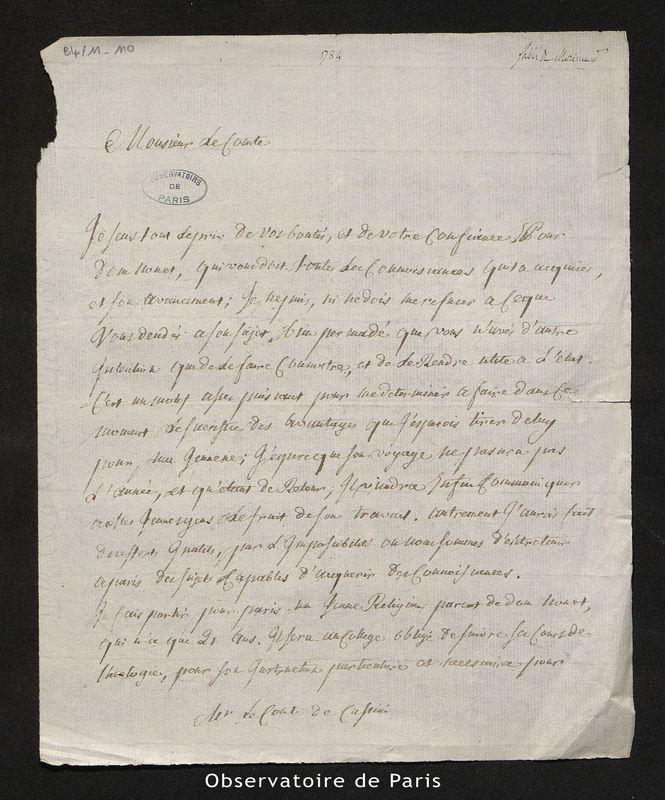 B4/11-110
1784
Monsieur Le Comte
OBSERVATOIRE
DE
PARIS
Je suis tout de vos bontés, et de votre Confiance Pour
Dom nouet, qui vous doit toutes Les Connoissances qu'il a acquises,
et son avancement; Je ne puis, ni ne dois me refuser a Ceque
Vous a son sujet, que vous n'avés d'autre
Intention que de Le faire Connoitre, et de Le Rendre utile a L'etat.
C'est un motif asses puissant pour me determiner a faire dans Ce
moment Le sacrifice des avantages que J'esperois tirer de luy
pour ma que son voyage ne passera pas
L'année, et qu'etant de Retour, Il viendra Enfin Communiquer
a Les Jeunes gens Le fruit de son travail. autrement J'aurois fait
des efforts Inutils, par L'Impossibilité ou nous sommes d'entretenir
a paris des sujets Capables d'acquerir Des Connoissances.
Je fais partir pour paris un Jeune Religieux parent de dom nouet,
qui n'a que 21 ans. Il sera au College obligé De suivre Le Cours de
theologie, pour son Instruction particuliere et necessaire pour
Mr Le Comte de Cassini
Observatoire de Paris